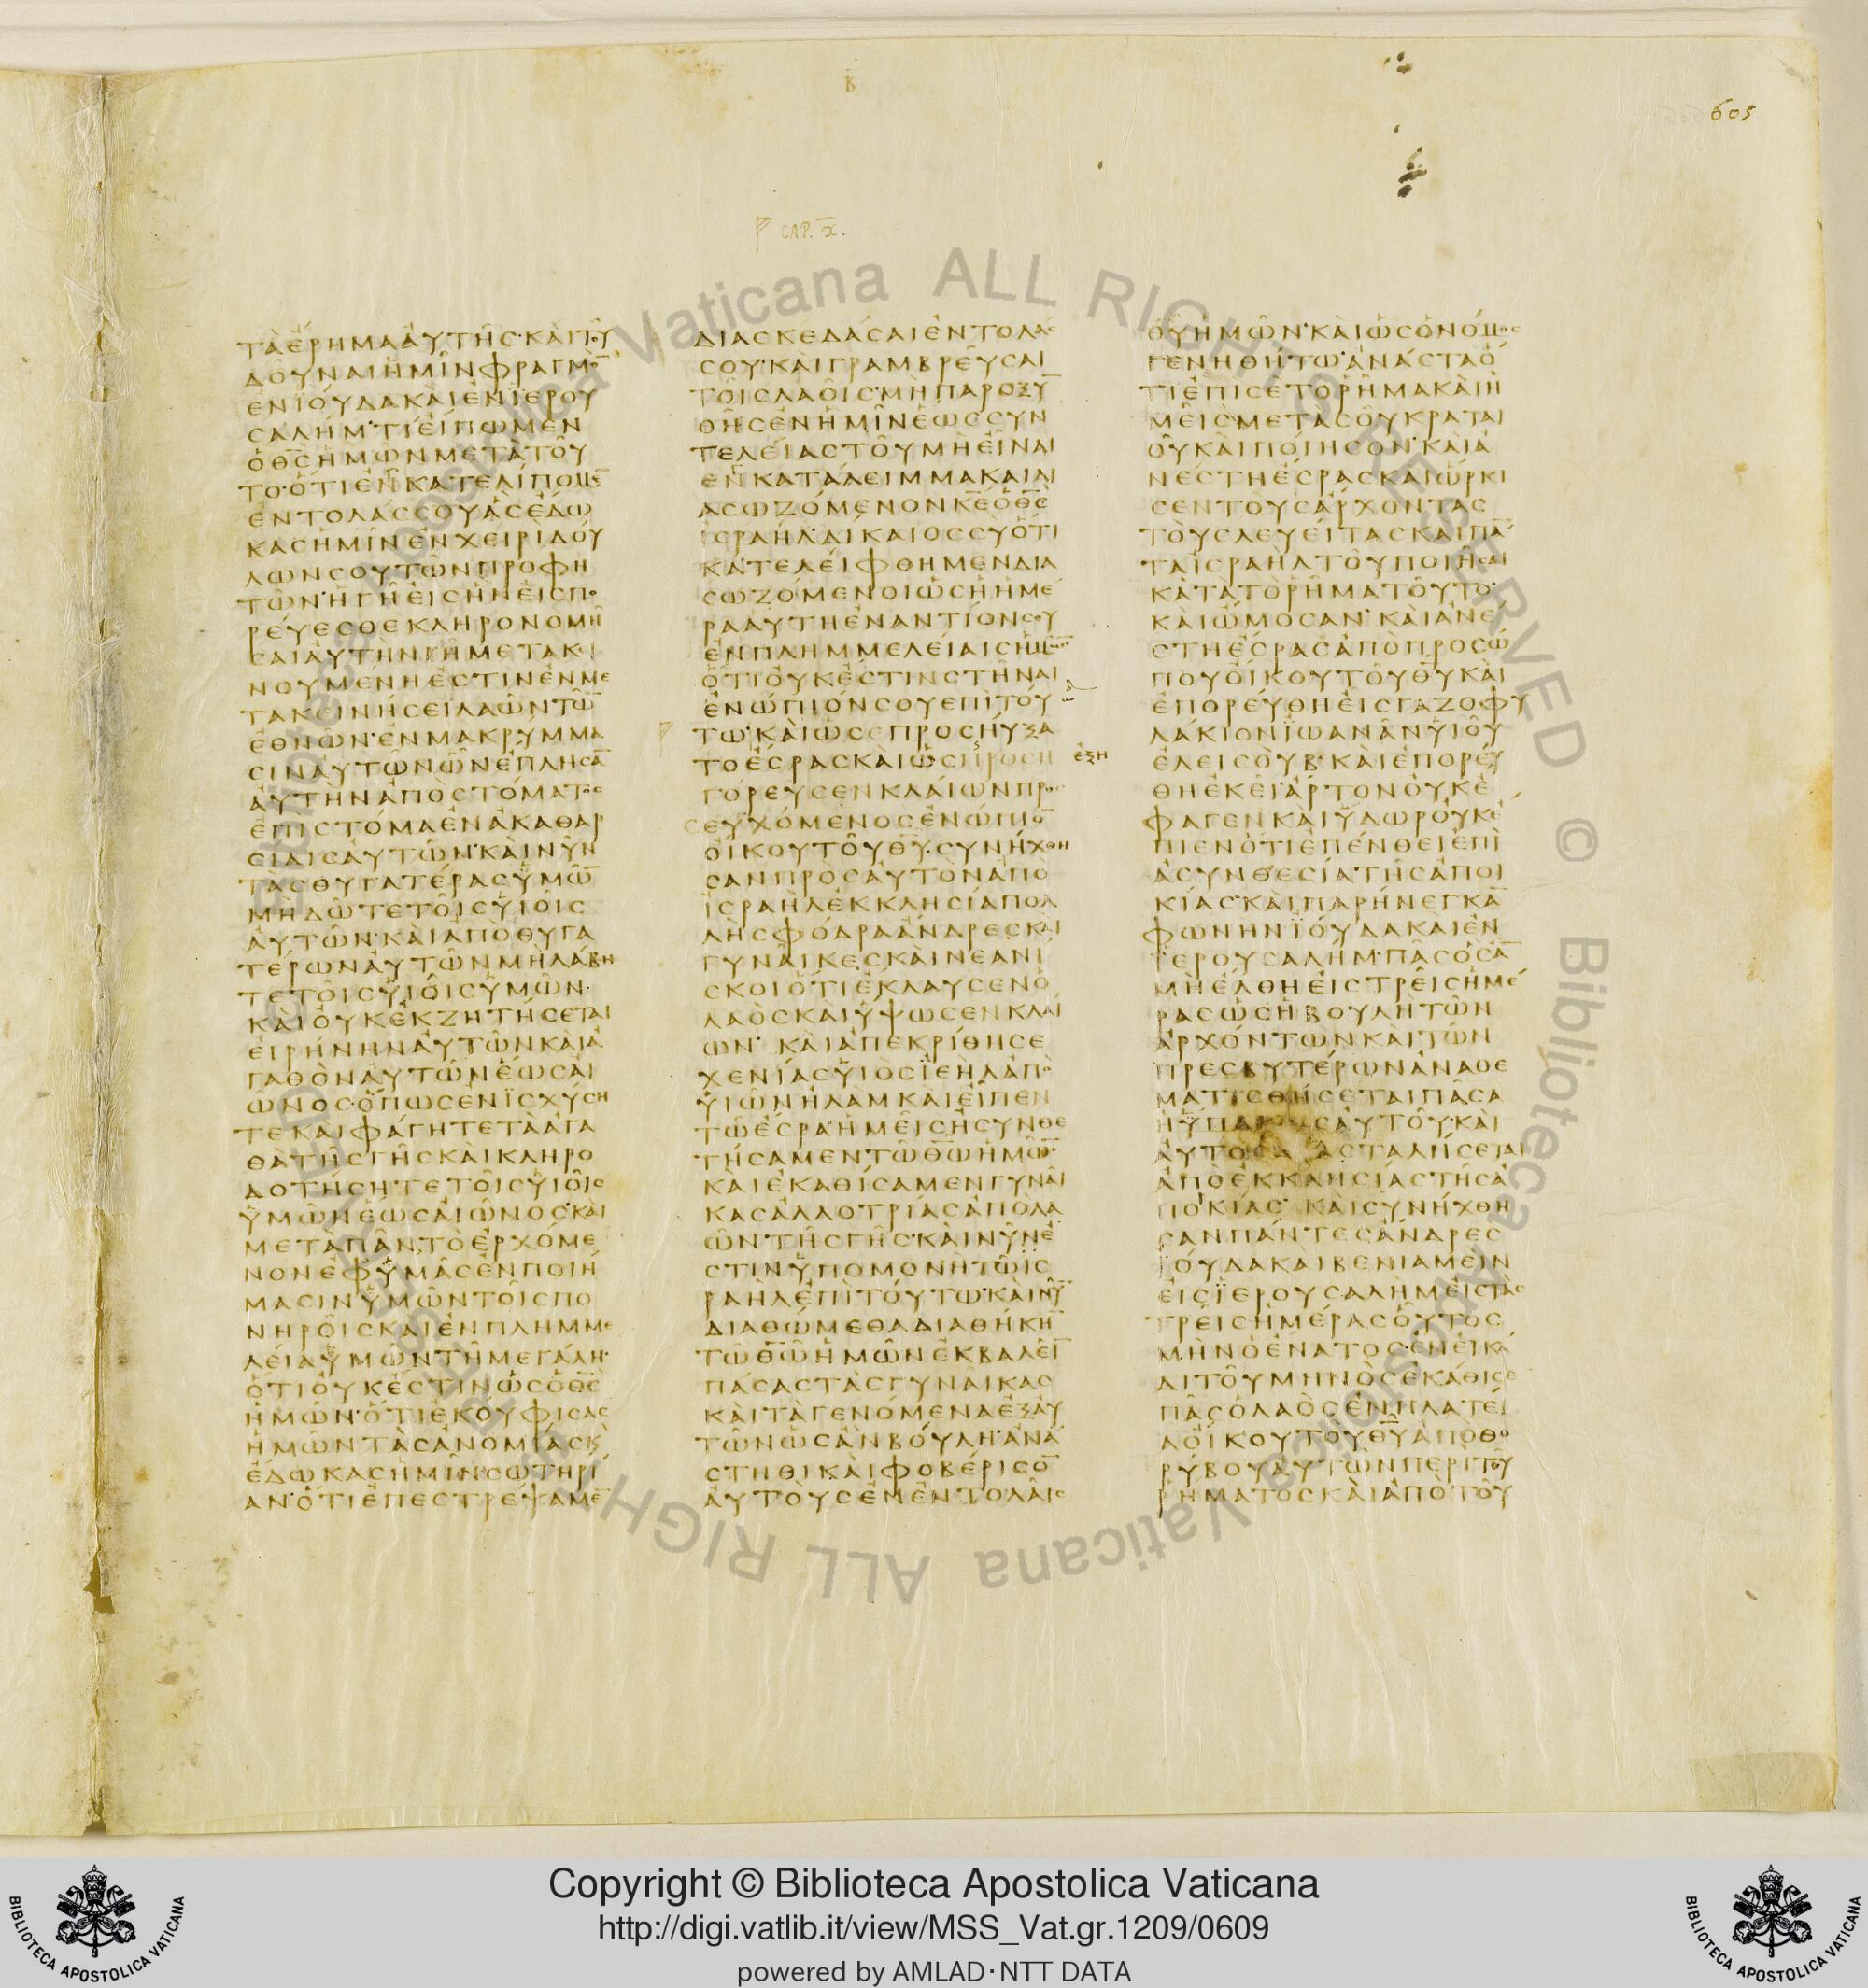 Β
605
CAP. X.
ΤΑΕΡΗΜΑΑΥΤΗΣ·ΚΑΙΤΟΥ
ΔΟΥΝΑΙΗΜΙΝΦΡΑΓΜΟ̅
ΕΝΙΟΥΔΑΚΑΙΕΝΙΕΡΟΥ
ΣΑΛΗΜ·ΤΙΕΙΠΩΜΕΝ
ΟΘ̅Σ̅ΗΜΩΝΜΕΤΑΤΟΥ
ΤΟ·ΟΤΙΕΓΚΑΤΕΛΙΠΟΜΕ̅
ΕΝΤΟΛΑΣΣΟΥΑΣΕΔΩ
ΚΑΣΗΜΙΝΕΝΧΕΙΡΙΔΟΥ
ΛΩΝΣΟΥΤΩΝΠΡΟΦΗ
ΤΩΝ·ΗΓΗΕΙΣΗΝΕΙΣΠΟ
ΡΕΥΕΣΘΕΚΛΗΡΟΝΟΜΗ
ΣΑΙΑΥΤΗΝΓΗΜΕΤΑΚΙ
ΝΟΥΜΕΝΗΕΣΤΙΝΕΝΜΕ
ΤΑΚΕΙΝΗΣΕΙΛΑΩΝΤΩ̅
ΕΘΝΩΝ·ΕΝΜΑΚΡΥΜΜΑ
ΣΙΝΑΥΤΩΝΩΝΕΠΛΗΣΑ̅
ΑΥΤΗΝΑΠΟΣΤΟΜΑΤΟΣ
ΕΠΙΣΤΟΜΑΕΝΑΚΑΘΑΡ
ΣΙΑΙΣΑΥΤΩΝ·ΚΑΙΝΥΝ
ΤΑΣΘΥΓΑΤΕΡΑΣΥΜΩ̅
ΜΗΔΩΤΕΤΟΙΣΥΙΟΙΣ
ΑΥΤΩΝ·ΚΑΙΑΠΟΘΥΓΑ
ΤΕΡΩΝΑΥΤΩΝΜΗΛΑΒΗ
ΤΕΤΟΙΣΥΙΟΙΣΥΜΩΝ·
ΚΑΙΟΥΚΕΚΖΗΤΗΣΕΤΑΙ
ΕΙΡΗΝΗΝΑΥΤΩΝΚΑΙΑ
ΓΑΘΟΝΑΥΤΩΝΕΩΣΑΙ
ΩΝΟΣ·ΟΠΩΣΕΝΙΣΧΥΣΗ
ΤΕΚΑΙΦΑΓΗΤΕΤΑΑΓΑ
ΘΑΤΗΣΓΗΣΚΑΙΚΛΗΡΟ
ΔΟΤΗΣΗΤΕΤΟΙΣΥΙΟΙΣ
ΥΜΩΝΕΩΣΑΙΩΝΟΣ·ΚΑΙ
ΜΕΤΑΠΑΝΤΟΕΡΧΟΜΕ
ΝΟΝΕΦΥΜΑΣΕΝΠΟΙΗ
ΜΑΣΙΝΥΜΩΝΤΟΙΣΠΟ
ΝΗΡΟΙΣΚΑΙΕΝΠΛΗΜΜΕ
ΛΕΙΑΥΜΩΝΤΗΜΕΓΑΛΗ·
ΟΤΙΟΥΚΕΣΤΙΝΩΣΟΘ̅Σ̅
ΗΜΩΝ·ΟΤΙΕΚΟΥΦΙΣΑΣ
ΗΜΩΝΤΑΣΑΝΟΜΙΑΣΚ
ΕΔΩΚΑΣΗΜΙΝΣΩΤΗΡΙ
ΑΝ·ΟΤΙΕΠΕΣΤΡΕΨΑΜΕ̅
ΔΙΑΣΚΕΔΑΣΑΙΕΝΤΟΛΑΣ
ΣΟΥ·ΚΑΙΓΡΑΜΒΡΕΥΣΑΙ
ΤΟΙΣΛΑΟΙΣ·ΜΗΠΑΡΟΞΥ̅
ΘΗΣΕΝΗΜΙΝΕΩΣΣΥΝ
ΤΕΛΕΙΑΣΤΟΥΜΗΕΙΝΑΙ
ΕΓΚΑΤΑΛΕΙΜΜΑΚΑΙΔΙ
ΑΣΩΖΟΜΕΝΟΝΚ̅Ε̅ΟΘ̅Σ̅
ΙΣΡΑΗΛ·ΔΙΚΑΙΟΣΣΥΟΤΙ
ΚΑΤΕΛΕΙΦΘΗΜΕΝΔΙΑ
ΣΩΖΟΜΕΝΟΙΩΣΗΗΜΕ
ΡΑΑΥΤΗΕΝΑΝΤΙΟΝΣΟΥ
ΕΝΠΛΗΜΜΕΛΕΙΑΙΣΗΜΩ̅
ΟΤΙΟΥΚΕΣΤΙΝΣΤΗΝΑΙ
ΕΝΩΠΙΟΝΣΟΥΕΠΙΤΟΥ
ΤΩ·ΚΑΙΩΣΕΠΡΟΣΗΥΞΑ
ΤΟΕΣΡΑΣΚΑΙΩΣΠΡΟΣΗ ΕΞΗ
ΓΟΡΕΥΣΕΝΚΛΑΙΩΝΠΡΟΣ
ΕΥΧΟΜΕΝΟΣΕΝΩΠΙΟ̅
ΟΙΚΟΥΤΟΥΘ̅Υ̅·ΣΥΝΗΧΘΗ
ΣΑΝΠΡΟΣΑΥΤΟΝΑΠΟ
ΙΣΡΑΗΛΕΚΚΛΗΣΙΑΠΟΛ
ΛΗΣΦΟΔΡΑΑΝΔΡΕΣΚΑΙ
ΓΥΝΑΙΚΕΣΚΑΙΝΕΑΝΙ
ΣΚΟΙΟΤΙΕΚΛΑΥΣΕΝΟ
ΛΑΟΣΚΑΙΥΨΩΣΕΝΚΛΑΙ
ΩΝ· ΚΑΙΑΠΕΚΡΙΘΗΣΕ
ΧΕΝΙΑΣΥΙΟΣΙΕΗΛΑΠΟ
ΥΙΩΝΗΛΑΜΚΑΙΕΙΠΕΝ
ΤΩΕΣΡΑΗΜΕΙΣΗΣΥΝΘΕ
ΤΗΣΑΜΕΝΤΩΘ̅Ω̅ΗΜΩ̅·
ΚΑΙΕΚΑΘΙΣΑΜΕΝΓΥΝΑΙ
ΚΑΣΑΛΛΟΤΡΙΑΣΑΠΟΛΑ
ΩΝΤΗΣΓΗΣ·ΚΑΙΝΥΝΕ
ΣΤΙΝΥΠΟΜΟΝΗΤΩΙΣ
ΡΑΗΛΕΠΙΤΟΥΤΩ·ΚΑΙΝΥ̅
ΔΙΑΘΩΜΕΘΑΔΙΑΘΗΚΗ̅
ΤΩΘ̅Ω̅ΗΜΩΝΕΚΒΑΛΕΙ̅
ΠΑΣΑΣΤΑΣΓΥΝΑΙΚΑΣ
ΚΑΙΤΑΓΕΝΟΜΕΝΑΕΞΑΥ
ΤΩΝΩΣΑΝΒΟΥΛΗ·ΑΝΑ
ΣΤΗΘΙΚΑΙΦΟΒΕΡΙΣΟ̅
ΑΥΤΟΥΣΕΝΕΝΤΟΛΑΙΣ
Θ̅Υ̅ΗΜΩΝ·ΚΑΙΩΣΟΝΟΜΟΣ
ΓΕΝΗΘΗΤΩ·ΑΝΑΣΤΑΟ
ΤΙΕΠΙΣΕΤΟΡΗΜΑΚΑΙΗ
ΜΕΙΣΜΕΤΑΣΟΥΚΡΑΤΑΙ
ΟΥΚΑΙΠΟΙΗΣΟΝ·ΚΑΙΑ
ΝΕΣΤΗΕΣΡΑΣΚΑΙΩΡΚΙ
ΣΕΝΤΟΥΣΑΡΧΟΝΤΑΣ
ΤΟΥΣΛΕΥΕΙΤΑΣΚΑΙΠΑ̅
ΤΑΙΣΡΑΗΛΤΟΥΠΟΙΗΣΑΙ
ΚΑΤΑΤΟΡΗΜΑΤΟΥΤΟ·
ΚΑΙΩΜΟΣΑΝ·ΚΑΙΑΝΕ
ΣΤΗΕΣΡΑΣΑΠΟΠΡΟΣΩ
ΠΟΥΟΙΚΟΥΤΟΥΘ̅Υ̅ΚΑΙ
ΕΠΟΡΕΥΘΗΕΙΣΓΑΖΟΦΥ
ΛΑΚΙΟΝΙΩΑΝΑΝΥΙΟΥ
ΕΛΕΙΣΟΥΒ·ΚΑΙΕΠΟΡΕΥ
ΘΗΕΚΕΙ·ΑΡΤΟΝΟΥΚΕ
ΦΑΓΕΝΚΑΙΥΔΩΡΟΥΚΕ
ΠΙΕΝΟΤΙΕΠΕΝΘΕΙΕΠΙ
ΑΣΥΝΘΕΣΙΑΤΗΣΑΠΟΙ
ΚΙΑΣ·ΚΑΙΠΑΡΗΝΕΓΚΑ̅
ΦΩΝΗΝΙΟΥΔΑΚΑΙΕΝ
ΙΕΡΟΥΣΑΛΗΜ·ΠΑΣΟΣΑ̅
ΜΗΕΛΘΗΕΙΣΤΡΕΙΣΗΜΕ
ΡΑΣΩΣΗΒΟΥΛΗΤΩΝ
ΑΡΧΟΝΤΩΝΚΑΙΤΩΝ
ΠΡΕΣΒΥΤΕΡΩΝΑΝΑΘΕ
ΜΑΤΙΣΘΗΣΕΤΑΙΠΑΣΑ
ΗΥΠΑΡΞΙΣΑΥΤΟΥ·ΚΑΙ
ΑΥΤΟΣΔΙΑΣΤΑΛΗΣΕΤΑΙ
ΑΠΟΕΚΚΛΗΣΙΑΣΤΗΣΑ
ΠΟΙΚΙΑΣ· ΚΑΙΣΥΝΗΧΘΗ
ΣΑΝΠΑΝΤΕΣΑΝΔΡΕΣ
ΙΟΥΔΑΚΑΙΒΕΝΙΑΜΕΙΝ
ΕΙΣΙΕΡΟΥΣΑΛΗΜΕΙΣΤΑΣ
ΤΡΕΙΣΗΜΕΡΑΣΟΥΤΟΣ
ΜΗΝΟΕΝΑΤΟΣ·ΕΝΕΙΚΑ
ΔΙΤΟΥΜΗΝΟΣΕΚΑΘΙΣΕ
ΠΑΣΟΛΑΟΣΕΝΠΛΑΤΕΙ
ΑΟΙΚΟΥΤΟΥΘ̅Υ̅ΑΠΟΘΟ
ΡΥΒΟΥΑΥΤΩΝΠΕΡΙΤΟΥ
ΡΗΜΑΤΟΣΚΑΙΑΠΟΤΟΥ
Vaticana ALL RIGHTS RESERVED © Biblioteca Apostolica Vaticana ALL RIGHTS RESERVED © Biblioteca Apostolica
Copyright © Biblioteca Apostolica Vaticana
http://digi.vatlib.it/view/MSS_Vat.gr.1209/0609
powered by AMLAD·NTT DATA
BIBLIOTECA APOSTOLICA VATICANA
BIBLIOTECA APOSTOLICA VATICANA